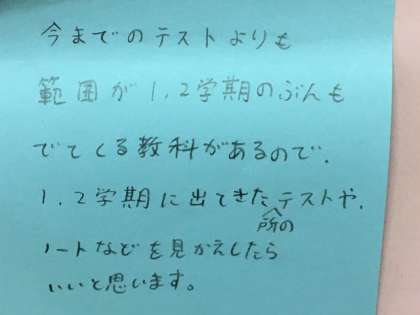 今までのテストよりも
範囲が1.2学期のぶんも
でてくる教科があるので.
1.2学期に出てきた所のテストや.
ノートなどを見かえしたら
いいと思います。